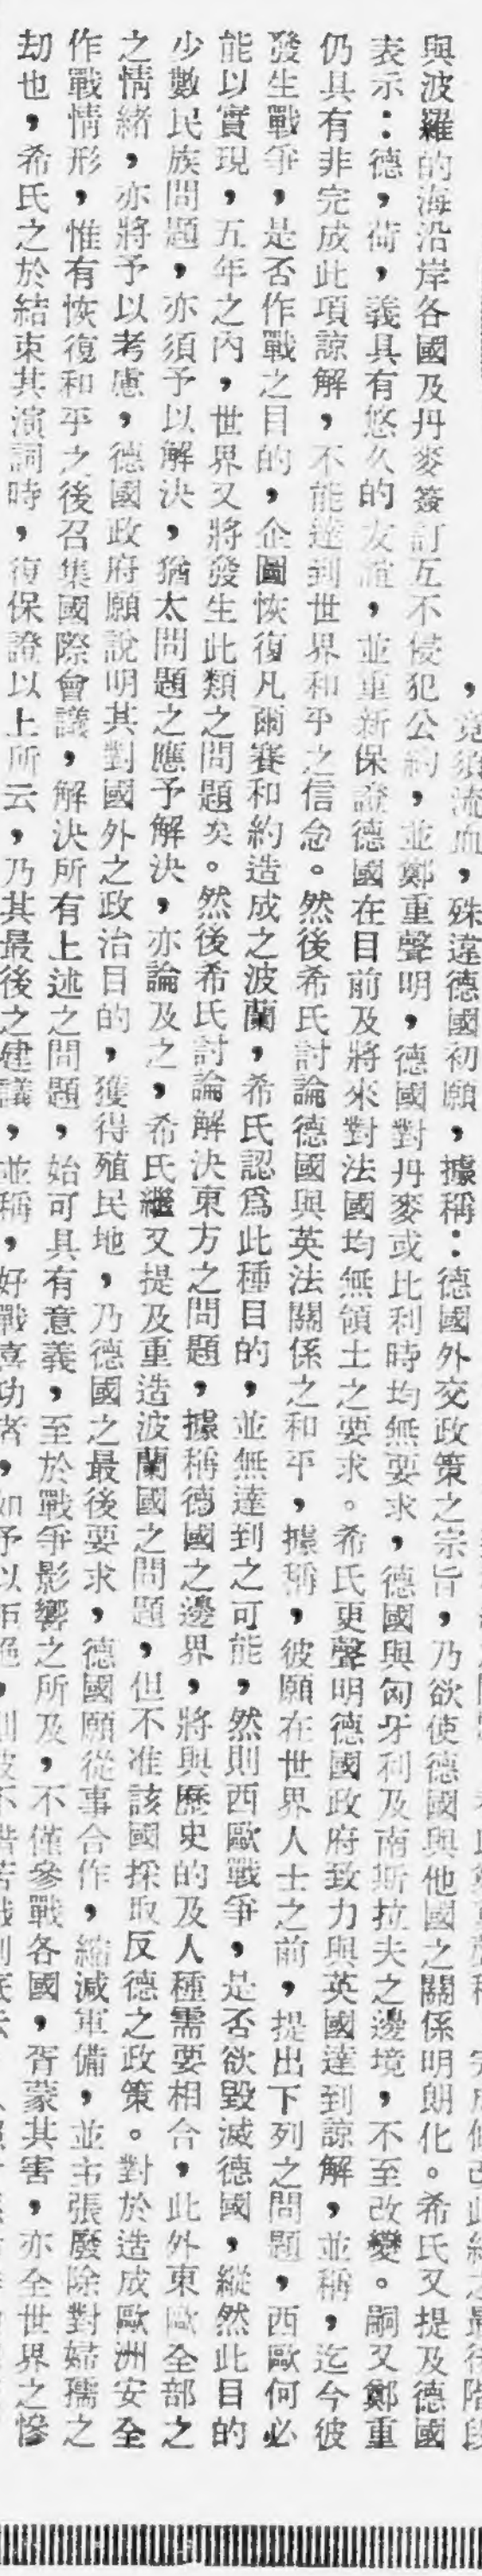 ，竟須流血，殊違德國初願，據稱：德國外交政策之宗旨，乃欲使德國與他國之關係明朗化。希氏又提及德國
與波羅的海沿岸各國及丹麥簽訂互不侵犯公約，並鄭重聲明，德國對丹麥或比利時均無要求，德國與匈牙利及南斯拉夫之邊境，不至改變。嗣又鄭重
表示：德，荷，義具有悠久的友誼，並重新保證德國在目前及將來對法國均無領土之要求。希氏更聲明德國政府致力與英國達到諒解，並稱，迄今彼
仍具有非完成此項諒解，不能達到世界和平之信念。然後希氏討論德國與英法關係之和平，據稱，彼願在世界人士之前，提出下列之問題，西歐何必
發生戰爭，是否作戰之目的，企圖恢復凡爾賽和約造成之波蘭，希氏認爲此種目的，並無達到之可能，然則西歐戰爭，是否欲毀滅德國，縱然此目的
能以實現，五年之內，世界又將發生此類之問題矣。然後希氏討論解決東方之問題，據稱德國之邊界，將與歷史的及人種需要相合，此外東歐全部之
少數民族問題，亦須予以解決，猶太問題之應予解決，亦論及之，希氏繼又提及重造波蘭國之問題，但不准該國採取反德之政策。對於造成歐洲安全
之情緒，亦將予以考慮，德國政府願說明其對國外之政治目的，獲得殖民地，乃德國之最後要求，德國願從事合作，縮減軍備，並主張廢除對婦孺之
作戰情形，惟有恢復和平之後召集國際會議，解決所有上述之問題，始可具有意義，至於戰爭影響之所及，不僅參戰各國，胥蒙其害，亦全世界之慘
劫也，希氏之於結束其演詞時，復保證以上所云，乃其最後之建議，並稱，好戰喜功者，如予以拒絕，則彼不惜苦戰到底云